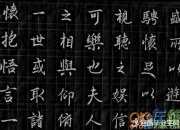 騁懷足以
視聽之娛信
可樂也夫人
之相與俯仰
一世或取諸
懷抱悟言一